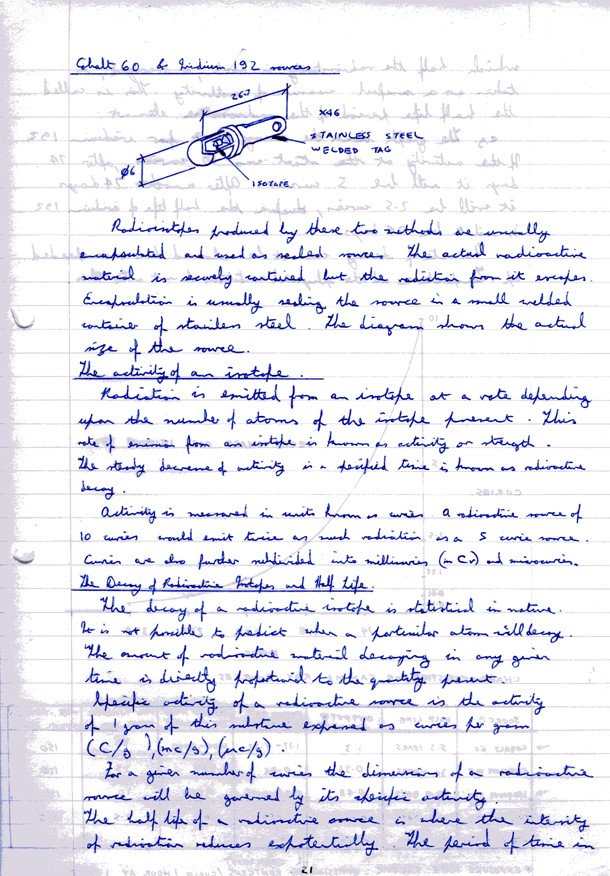 Cobalt 60 & Iridium 192 sources.
26.7
X46
STAINLESS STEEL
WELDED TAG
Ø6
ISOTOPE
Radioisotopes produced by these two methods are usually
encapsulated and used as sealed sources. The actual radioactive
material is securely contained but the radiation from it escapes.
Encapsulation is usually sealing the source in a small welded
container of stainless steel. The diagram shows the actual
size of the source.
The activity of an isotope.
Radiation is emitted from an isotope at a rate depending
upon the number of atoms of the isotope present. This
rate of emission from an isotope is known as activity or strength.
The steady decrease of activity in a specified time is known as radioactive
decay.
Activity is measured in units known as curies. A radioactive source of
10 curies would emit twice as much radiation as a 5 curie source.
Curies are also further subdivided into millicuries (m Cu) and microcuries.
The Decay of Radioactive Isotopes and Half Life.
The decay of a radioactive isotope is statistical in nature.
It is not possible to predict when a particular atom will decay.
The amount of radioactive material decaying in any given
time is directly proportional to the quantity present
Specific activity of a radioactive source is the activity
of 1 gram of this substance expressed as curies per gram
(C/g), (mc/g), (µc/g).
For a given number of curies the dimensions of a radioactive
source will be governed by its specific activity
The half life of a radioactive source is where the intensity
of radiation reduces expotentially. The period of time in
21